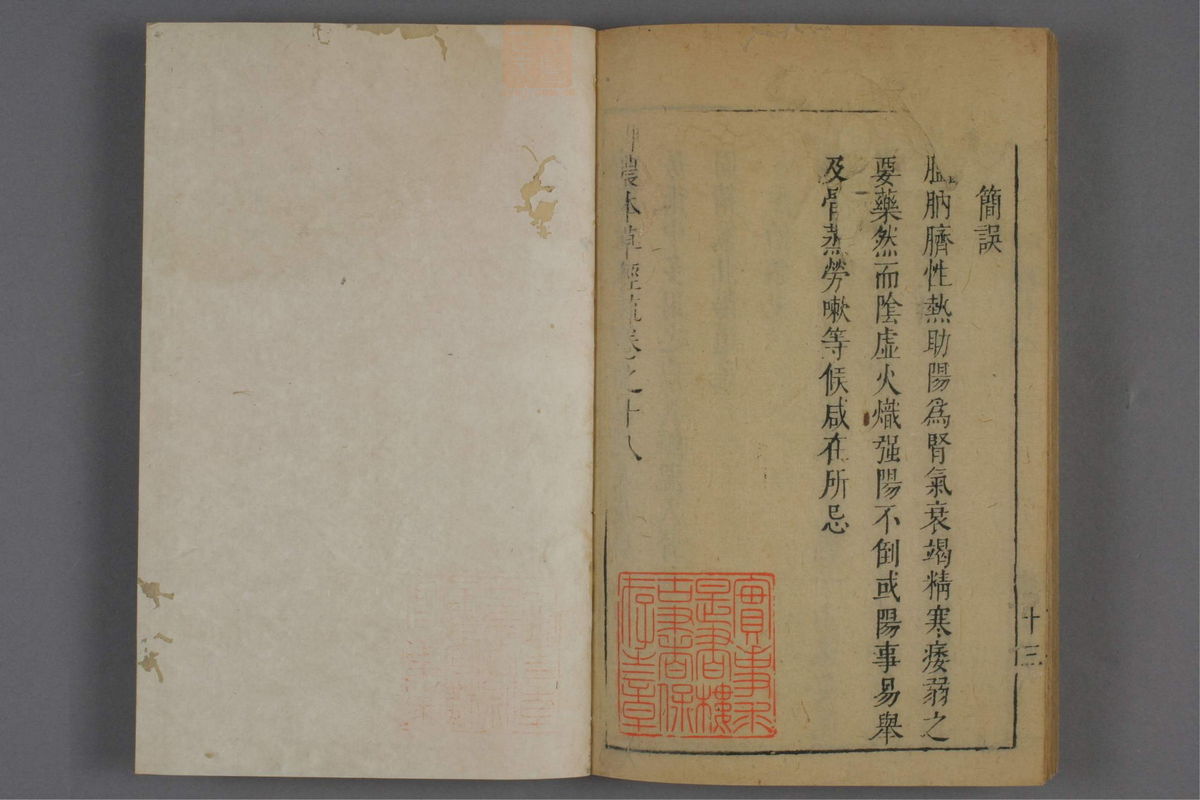 簡誤
膃肭臍性熱助陽爲腎氣衰竭精寒痿弱之
要藥然而陰虛火熾强陽不倒或陽事易舉
及骨蒸勞嗽等候咸在所忌
農本草經疏卷之十八
十三
實事求
是書樓
古書保
存之章